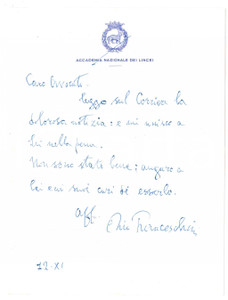 ACCADEMIA NAZIONALE DEI LINCEI
Caro
leggo sul Corriere la
dolorosa notizia: e mi unisco a
Lei nella pena.
Non sono stato bene: auguro a
Lei e ai suoi cari di esserlo.
aff.
12-XI